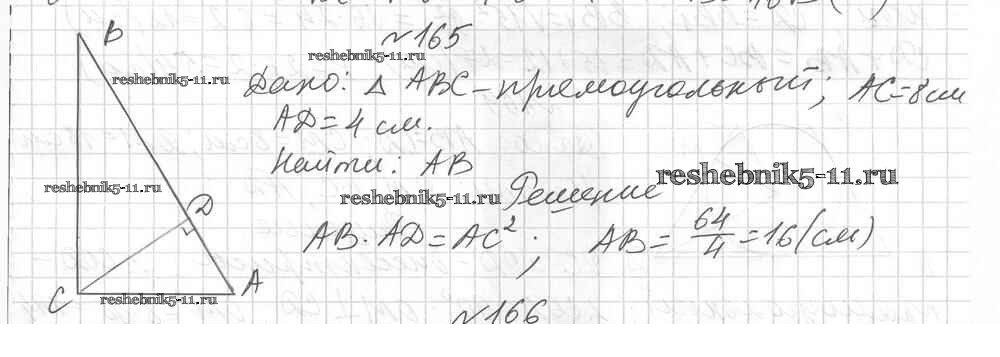 №165
Дано: △ ABC - прямоугольный; AC = 8 см
AD = 4 см.
Найти: AB
Решение
AB · AD = AC²; AB = 64/4 = 16 (см)
B
D
C
A
№166
reshebnik5-11.ru
reshebnik5-11.ru
reshebnik5-11.ru
reshebnik5-11.ru
reshebnik5-11.ru
reshebnik5-11.ru